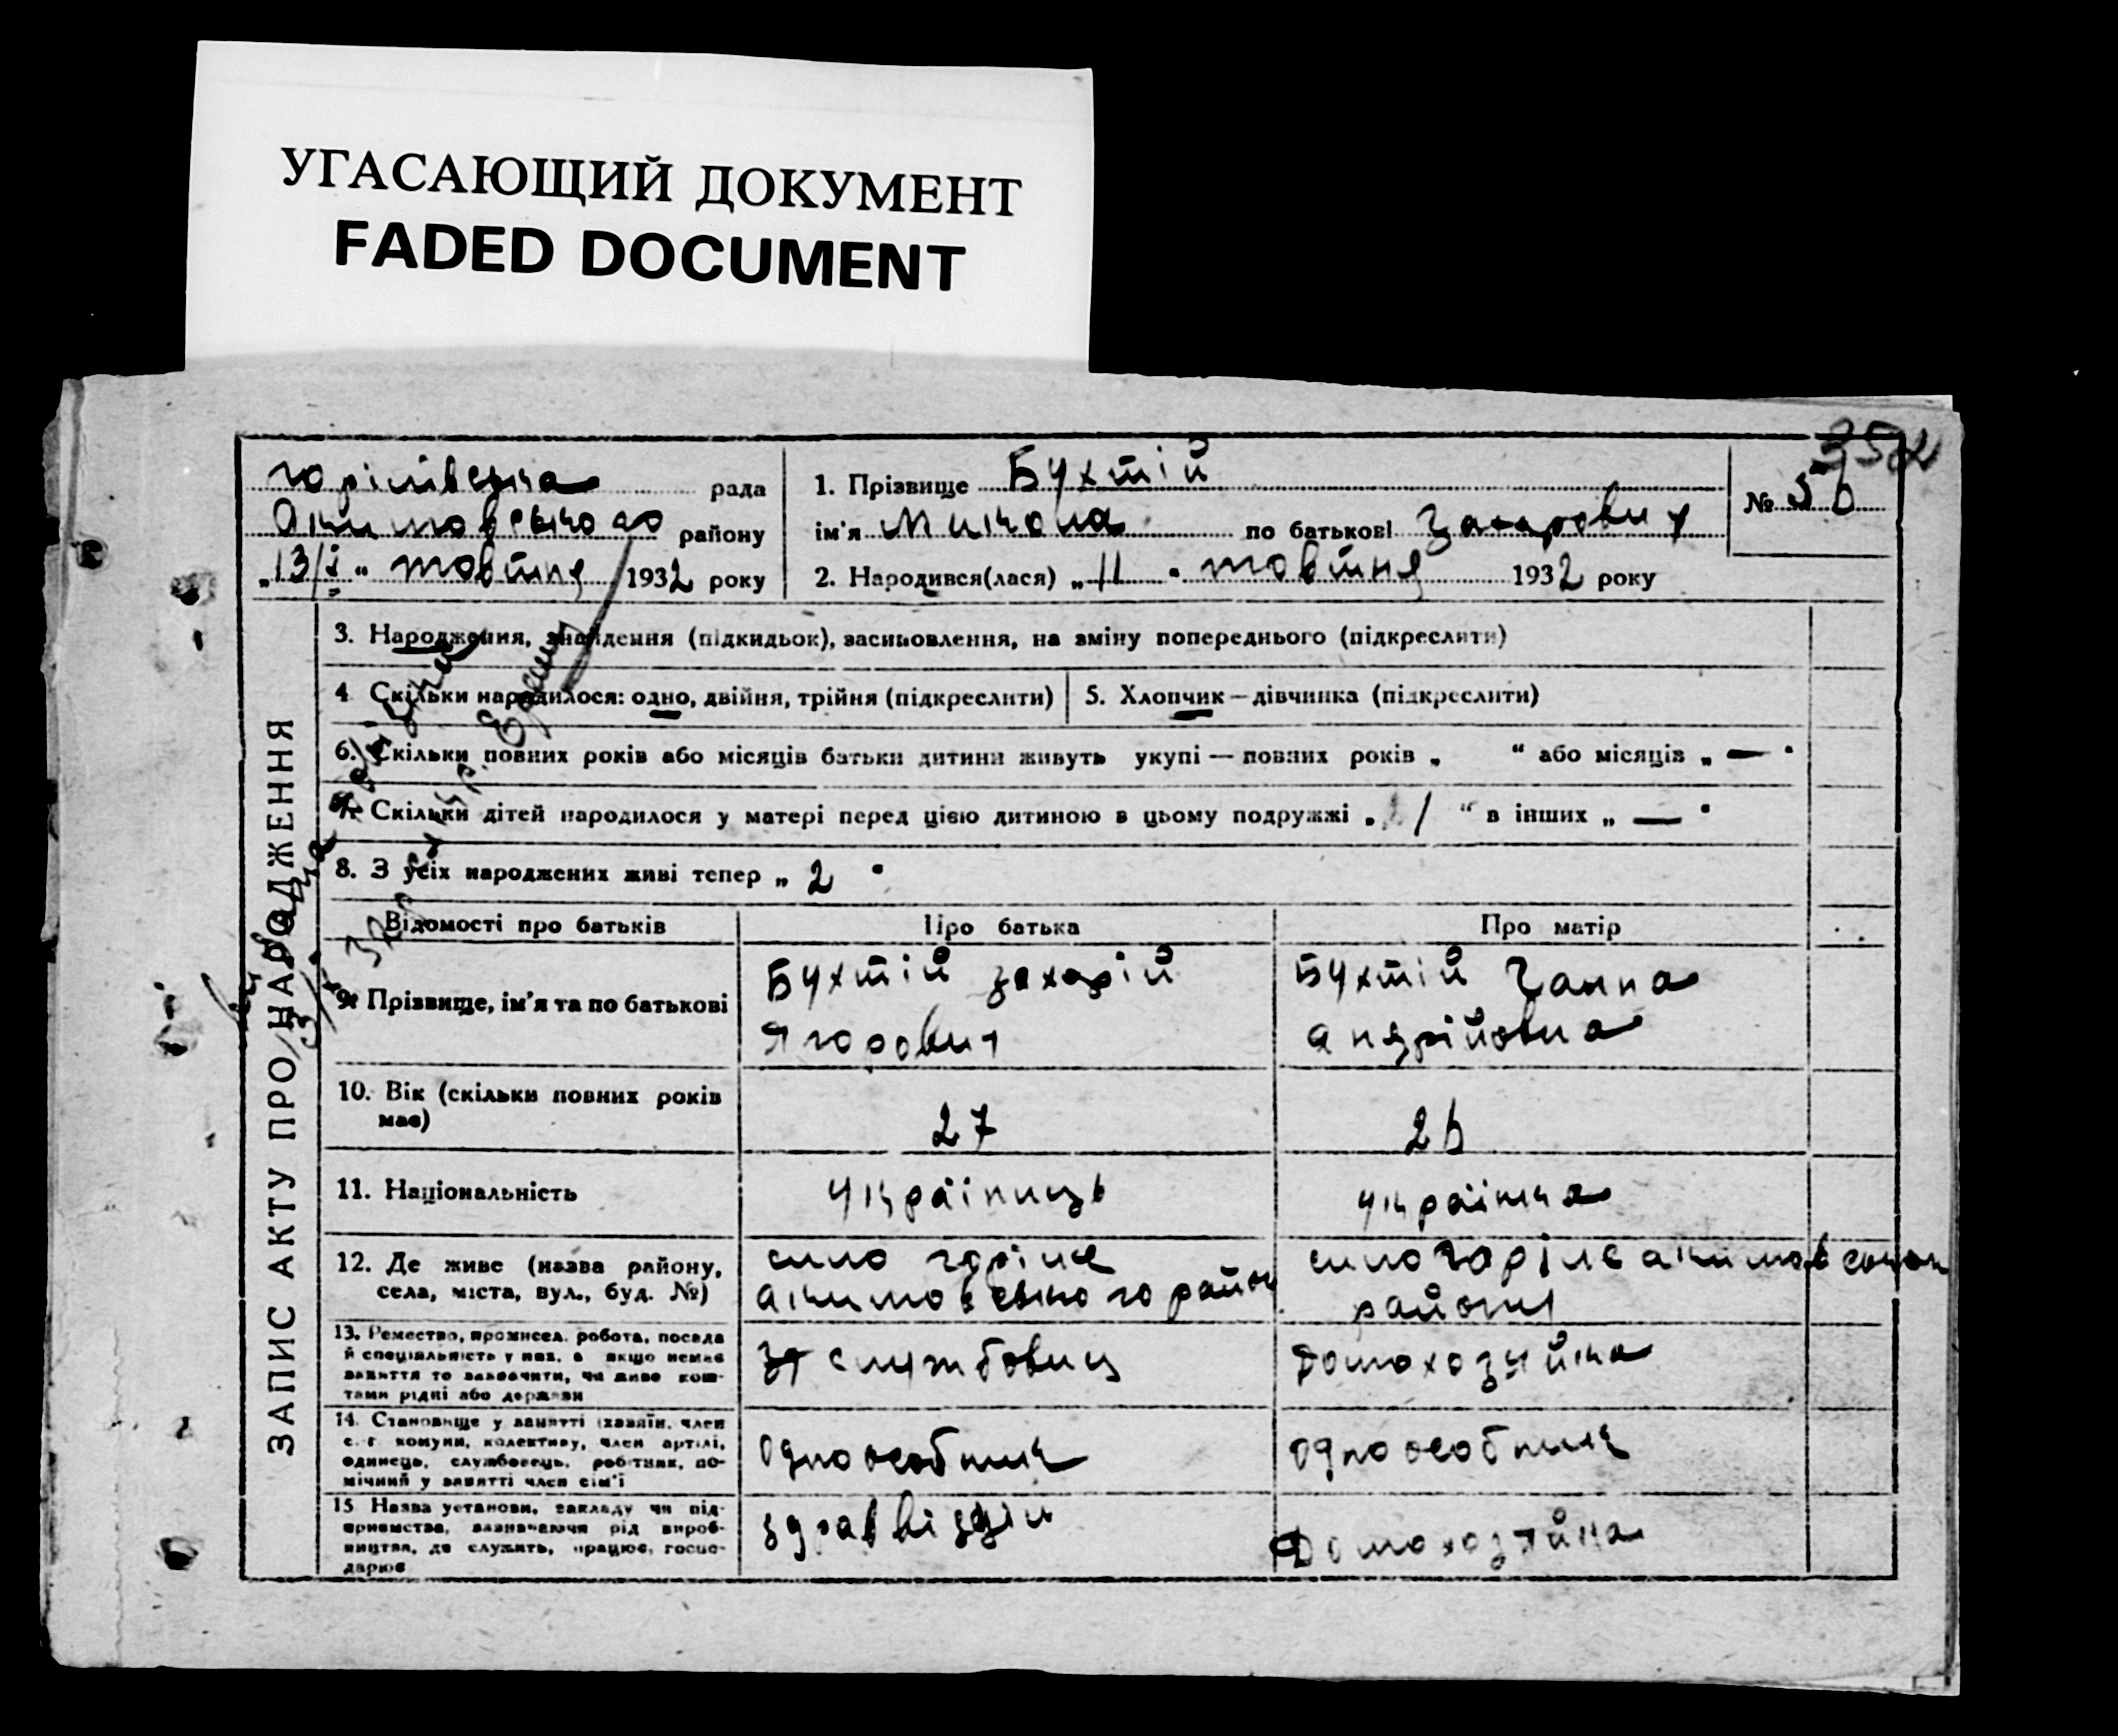 УГАСАЮЩИЙ ДОКУМЕНТ
FADED DOCUMENT
352
горілівська рада
Акимовського району
„13/X“ жовтня 1932 року
1. Прізвище Бухтій
ім'я Микола по батькові Захарович
2. Народився(лася) „11“ жовтня 1932 року
№ 56
ЗАПИС АКТУ ПРО НАРОДЖЕННЯ
3. Народження, знайдення (підкидьок), засиновлення, на зміну попереднього (підкреслити)
4 Скільки народилося: одно, двійня, трійня (підкреслити)
5. Хлопчик — дівчинка (підкреслити)
6. Скільки повних років або місяців батьки дитини живуть укупі — повних років „ “ або місяців „ — “
7. Скільки дітей народилося у матері перед цією дитиною в цьому подружжі „ 1 “ в інших „ — “
8. З усіх народжених живі тепер „ 2 “
Відомості про батьків Про батька Про матір
9. Прізвище, ім'я та по батькові
Бухтій захарій
Ягорович
Бухтій Ганна
андрійовна
10. Вік (скільки повних років має)
27
26
11. Національність
україниць
українка
12. Де живе (назва району,
села, міста, вул., буд. №)
сило горіле
акимовського район
сило горіле акимовському
району
13. Ремество, промисел, робота, посада
й спеціальність у них, а якщо немає
заняття то зазначити, чи живе кош-
тами рідні або держави
службовиц
Домохозяйка
14. Становище у занятті (хазяїн, член
с.-г. комуни, колективу, член артілі,
одинець, службовець, робітник, по-
мічний у занятті член сім'ї
одноособник
одноособниця
15 Назва установи, закладу чи під-
приємства, зазначаючи рід вироб-
ництва, де служить, працює, госпо-
дарює
здраввідділ
Домохозяйка